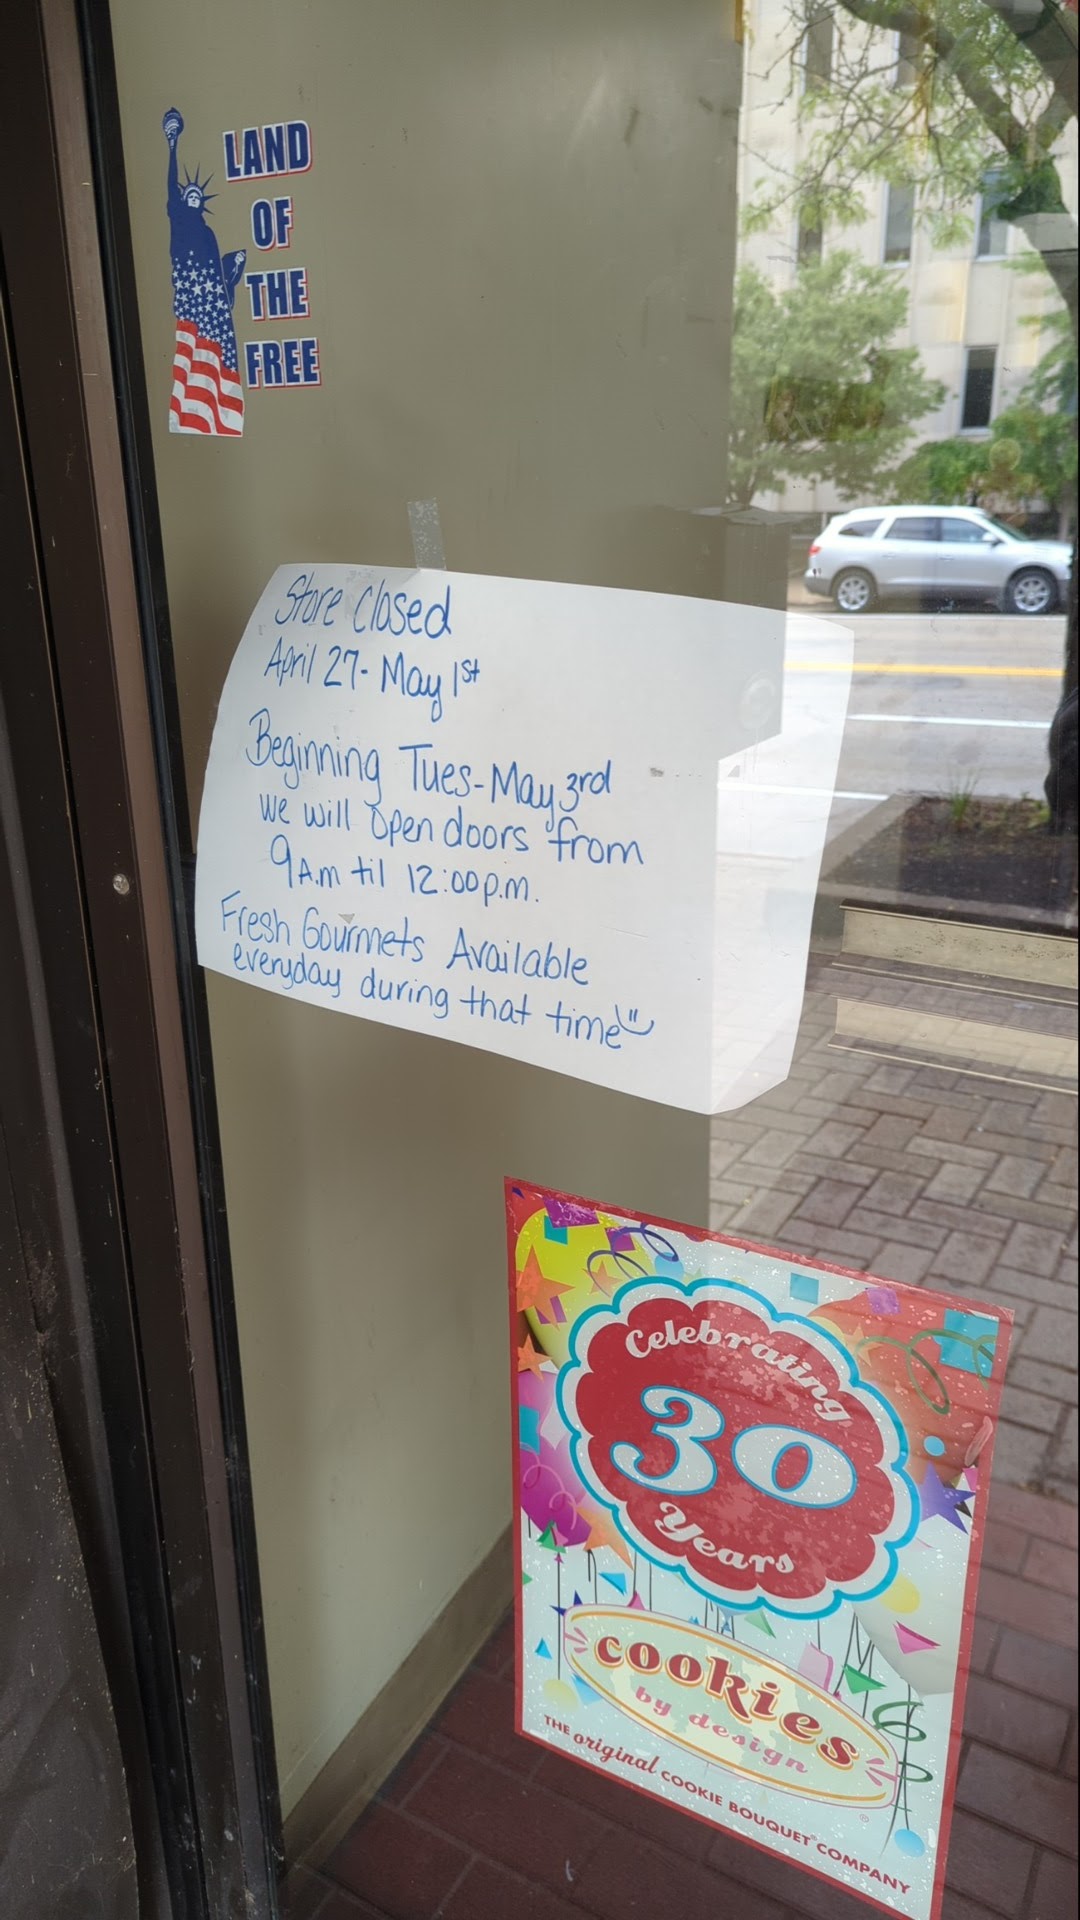 LAND
OF
THE
FREE
Store Closed
April 27- May 1st
Beginning Tues-May 3rd
we will open doors from
9A.m til 12:00p.m.
Fresh Gourmets Available
everyday during that time
Celebrating
30
Years
cookies
by design
®
THE original COOKIE BOUQUET® COMPANY